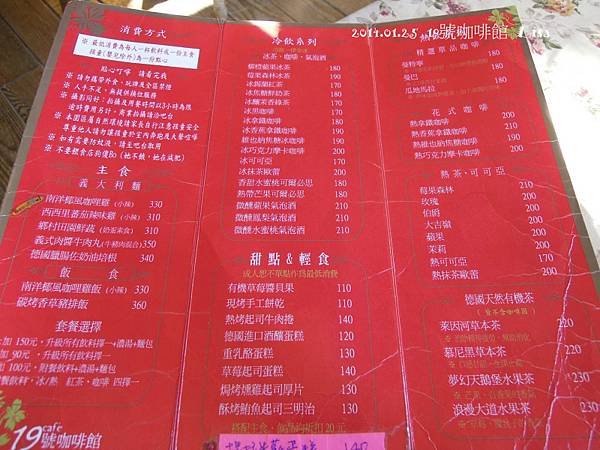 2014.01.25 19號咖啡館
消費方式
※ 最低消費為每人一杯飲料或一份主食
點心叮嚀 請看完我
※ 請勿攜帶外食、玩牌及全區禁煙
※ 人手不足，無提供插位服務
※ 攝影同好：拍攝及用餐時間以3小時為限
※ 如有需要防蚊液，請至吧台取用
※ 不要餵食店狗優Bo (她不餓，她在減肥)
主食
義大利麵
南洋椰風咖哩雞 (小辣) 330
西西里蕃茄辣味雞 (小辣) 310
鄉村田園鮮蔬 (奶蛋素食) 310
義式肉醬牛肉丸 (牛豬肉混合) 350
德國臘腸佐奶油培根 340
飯食
南洋椰風咖哩雞飯 (小辣) 330
碳烤香草豬排飯 360
套餐選擇
加 150元，升級所有飲料擇一+濃湯+麵包
加 90元，升級所有飲料擇一
加 100元，附餐飲料+濃湯+麵包
餐飲料：冰/熱 紅茶、咖啡 四擇一
19 cafe
號咖啡館
冷飲系列
冰茶、咖啡、氣泡酒
櫻橙蘋果冰茶 180
莓果森林冰茶 180
冰錫蘭紅茶 180
冰焦糖鮮奶茶 180
冰釀茉香綠茶 180
冰黑咖啡 180
冰拿鐵咖啡 180
冰香蕉拿鐵咖啡 190
維也納焦糖冰咖啡 200
冰巧克力摩卡咖啡 200
冰可可亞 180
冰抹茶歐蕾 200
香甜水蜜桃可爾必思 180
熱帶芒果可爾必思 180
微醺蘋果氣泡酒 210
微醺鳳梨氣泡酒 210
微醺水蜜桃氣泡酒 210
甜點&輕食
成人恕不單點作為最低消費
有機草莓醬貝果 110
現烤手工餅乾 110
熱烤起司牛肉捲 140
德國進口酒釀蛋糕 130
重乳酪蛋糕 130
草莓起司蛋糕 130
焗烤燻雞起司厚片 130
酥烤鮪魚起司三明治 130
搭配主食，甜品均折扣20元
140
精選單品咖啡
曼特寧
曼巴
瓜地馬拉
花式咖啡
熱拿鐵咖啡 200
熱香蕉拿鐵咖啡 200
熱維也納焦糖咖啡 200
熱巧克力摩卡咖啡 200
熱茶・可可亞
莓果森林 200
玫瑰 200
伯爵 200
大吉嶺 200
蘋果 200
茉莉 200
熱可可亞 170
熱抹茶歐蕾 200
德國天然有機茶
萊因河草本茶 220
慕尼黑草本茶 220
夢幻天鵝堡水果茶 230
浪漫大道水果茶 230